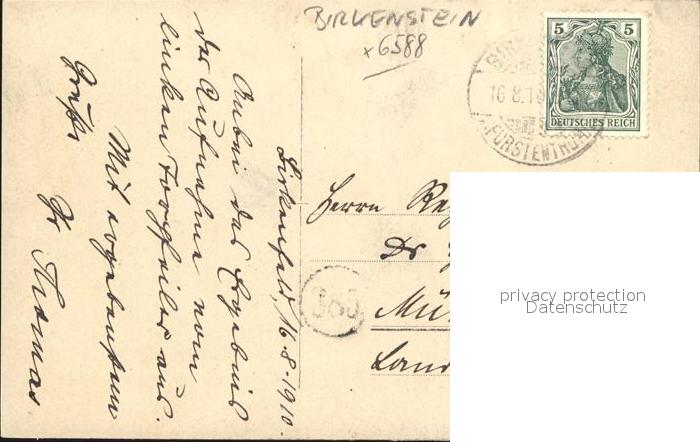 BIRKENSTEIN
x6588
5 5
DEUTSCHES REICH
BIR
16 8.10
FÜRSTENTHUM
Birkenfeld, 16.8.1910.
Anbei das Ergebnis
der Aufnahme vom
linken Torpfeiler aus.
Mit ergebenstem
Gruße
Thomas
Herrn Reg
Dr
Mü
Land
385
privacy protection
Datenschutz